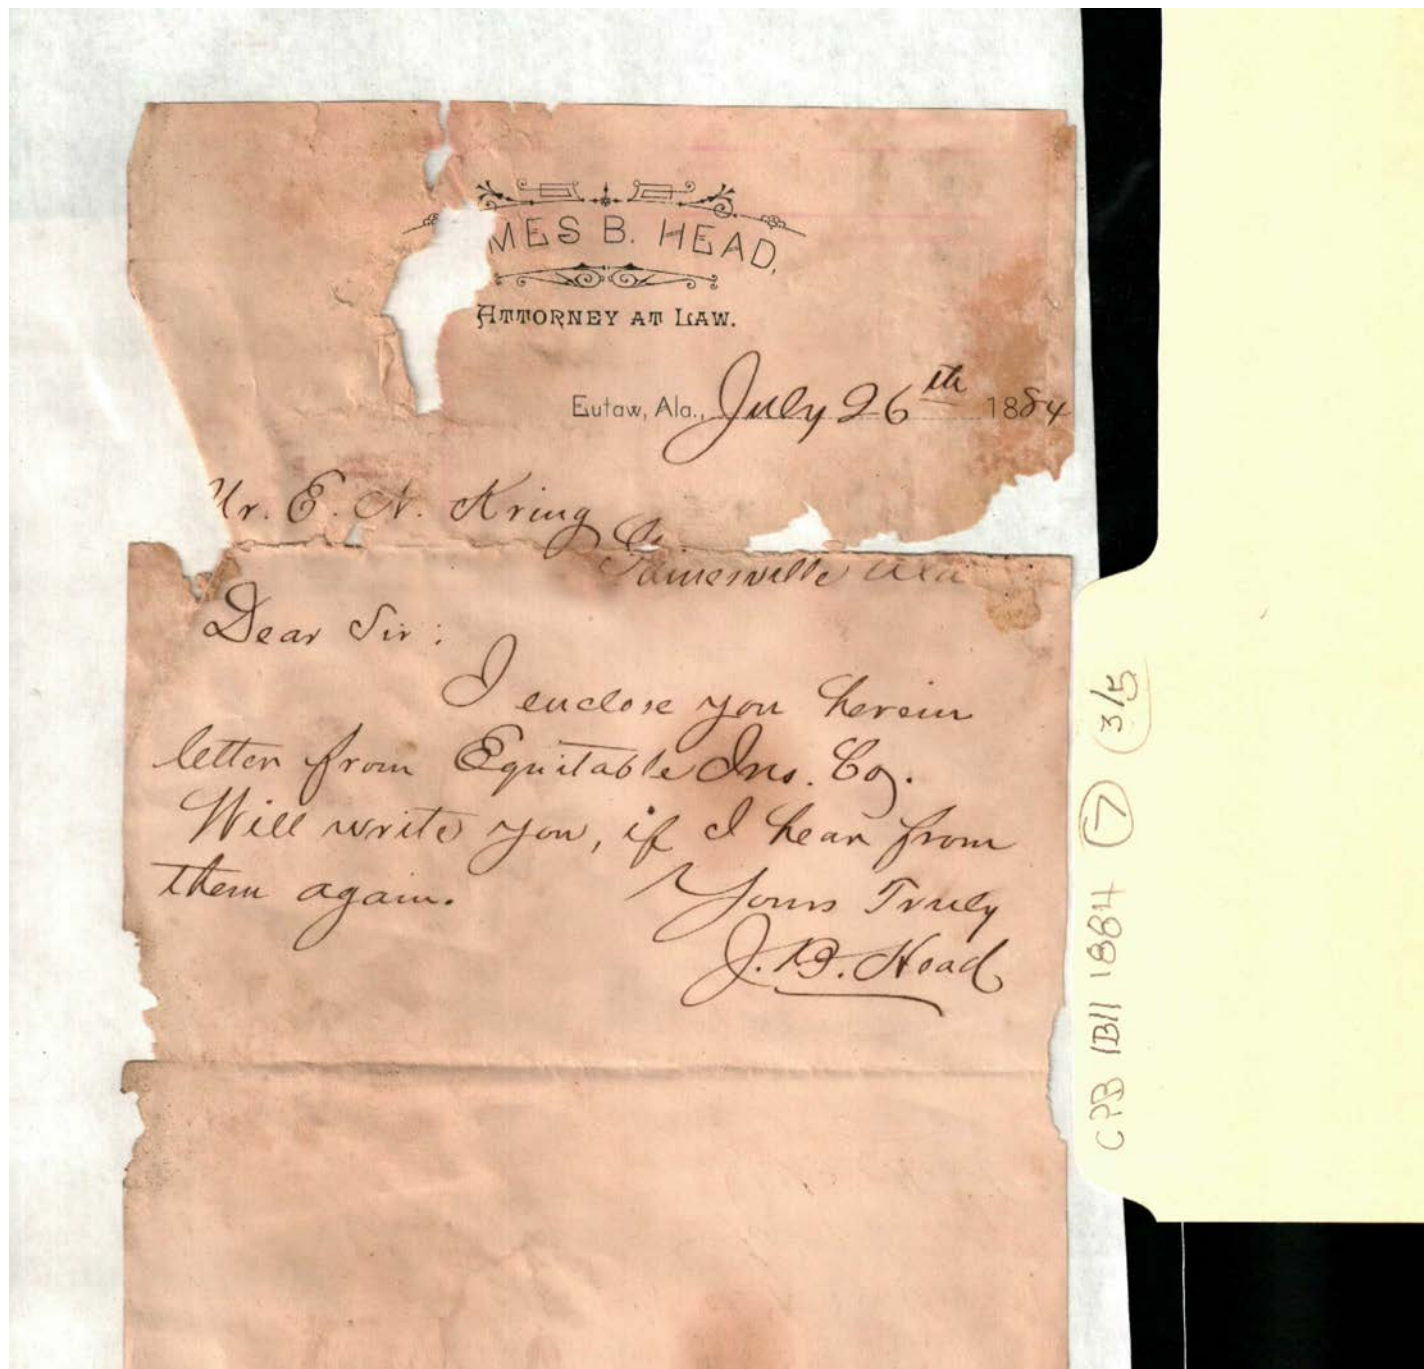 MES B. HEAD,
ATTORNEY AT LAW.
Eutaw, Ala., July 26th 1884
Mr. E. N. Kring
Gainesville Ala
Dear Sir:
I enclose you herein
letter from Equitable Ins. Co.
Will write you, if I hear from
them again.
Yours Truly
J. B. Head
CPB 1B11 1884 7 3/5